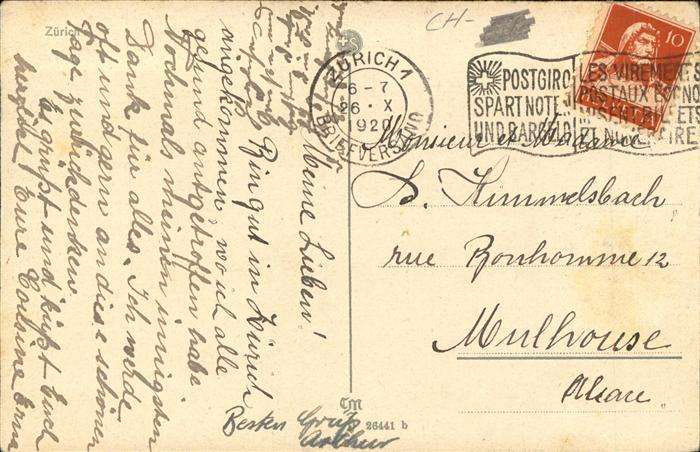 Zürich
CH-
ZÜRICH 1
6-7
26. X
1920
BRIEFVERSAND
POSTGIRO
SPART NOTE
UND BARGELD
LES VIREMENTS
POSTAUX
ET NUMERAIRE
10
HELVETIA
Monsieur et Madame
S. Kimmelsbach
rue Bonhomme 12
Mulhouse
Alsace
Meine Lieben!
Bin gut in Zürich
angekommen, wo ich alle
gesund antgetroffen habe
Nochmals meinen innigsten
Dank für alles. Ich werde
oft und gern an diese schönen
Tage zurückdenken.
Es grüsst und küsst Euch
herzlichst Eure Cousine Erna
Besten Gruß
Arthur
26441 b